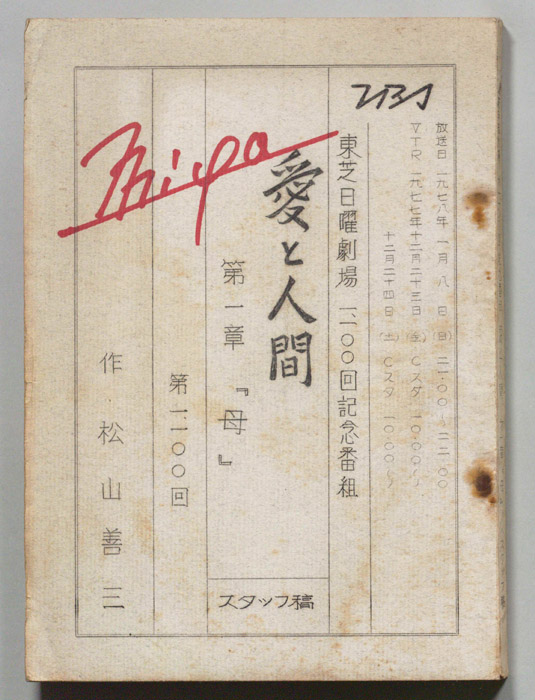 TBS
放送日 一九七八年 一月 八 日 (日) 二一・〇〇～二二・〇〇
VTR 一九七七年十二月二十三日 (金) Cスタ 一〇・〇〇～
十二月二十四日 (土) Cスタ 一〇・〇〇～
東芝日曜劇場 一、一〇〇回記念番組
愛と人間
第一章 『母』
スタッフ稿
第一、一〇〇回
作・松山善三